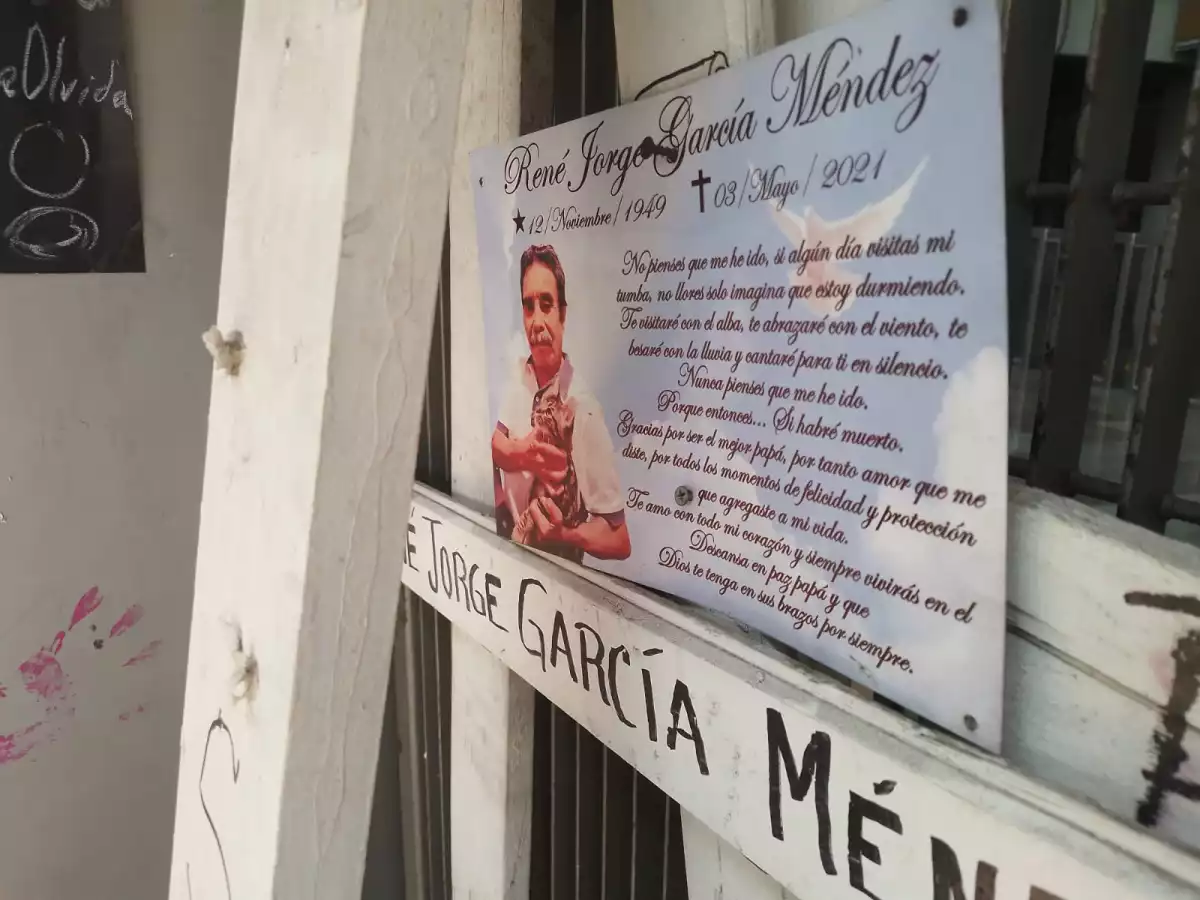 Olvida
René Jorge García Méndez
12/Noviembre/1949 03/Mayo/2021
No pienses que me he ido, si algún día visitas mi
tumba, no llores solo imagina que estoy durmiendo.
Te visitaré con el alba, te abrazaré con el viento, te
besaré con la lluvia y cantaré para ti en silencio.
Nunca pienses que me he ido.
Porque entonces... Si habré muerto.
Gracias por ser el mejor papá, por tanto amor que me
diste, por todos los momentos de felicidad y protección
que agregaste a mi vida.
Te amo con todo mi corazón y siempre vivirás en el
Descansa en paz papá y que
Dios te tenga en sus brazos por siempre.
É JORGE GARCÍA MÉN